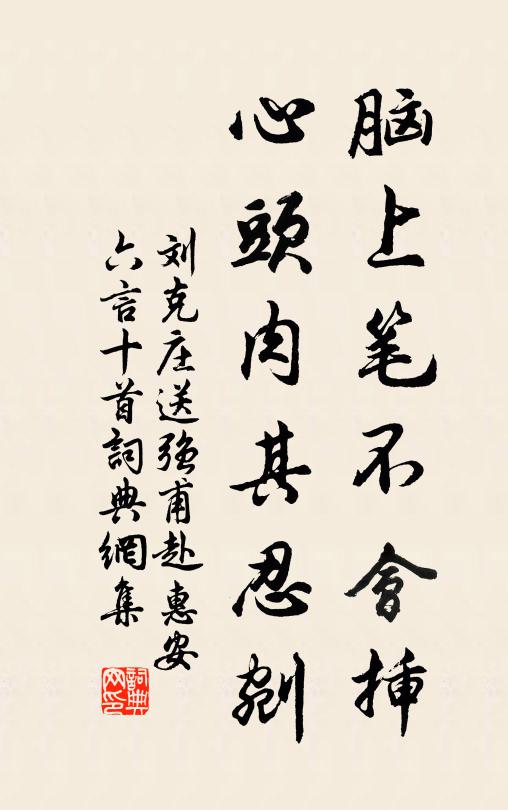 脑上笔不會揷
心頭肉其忍剜
刘克庄送强甫赴惠安
六言十首詞典網集
詞典網印